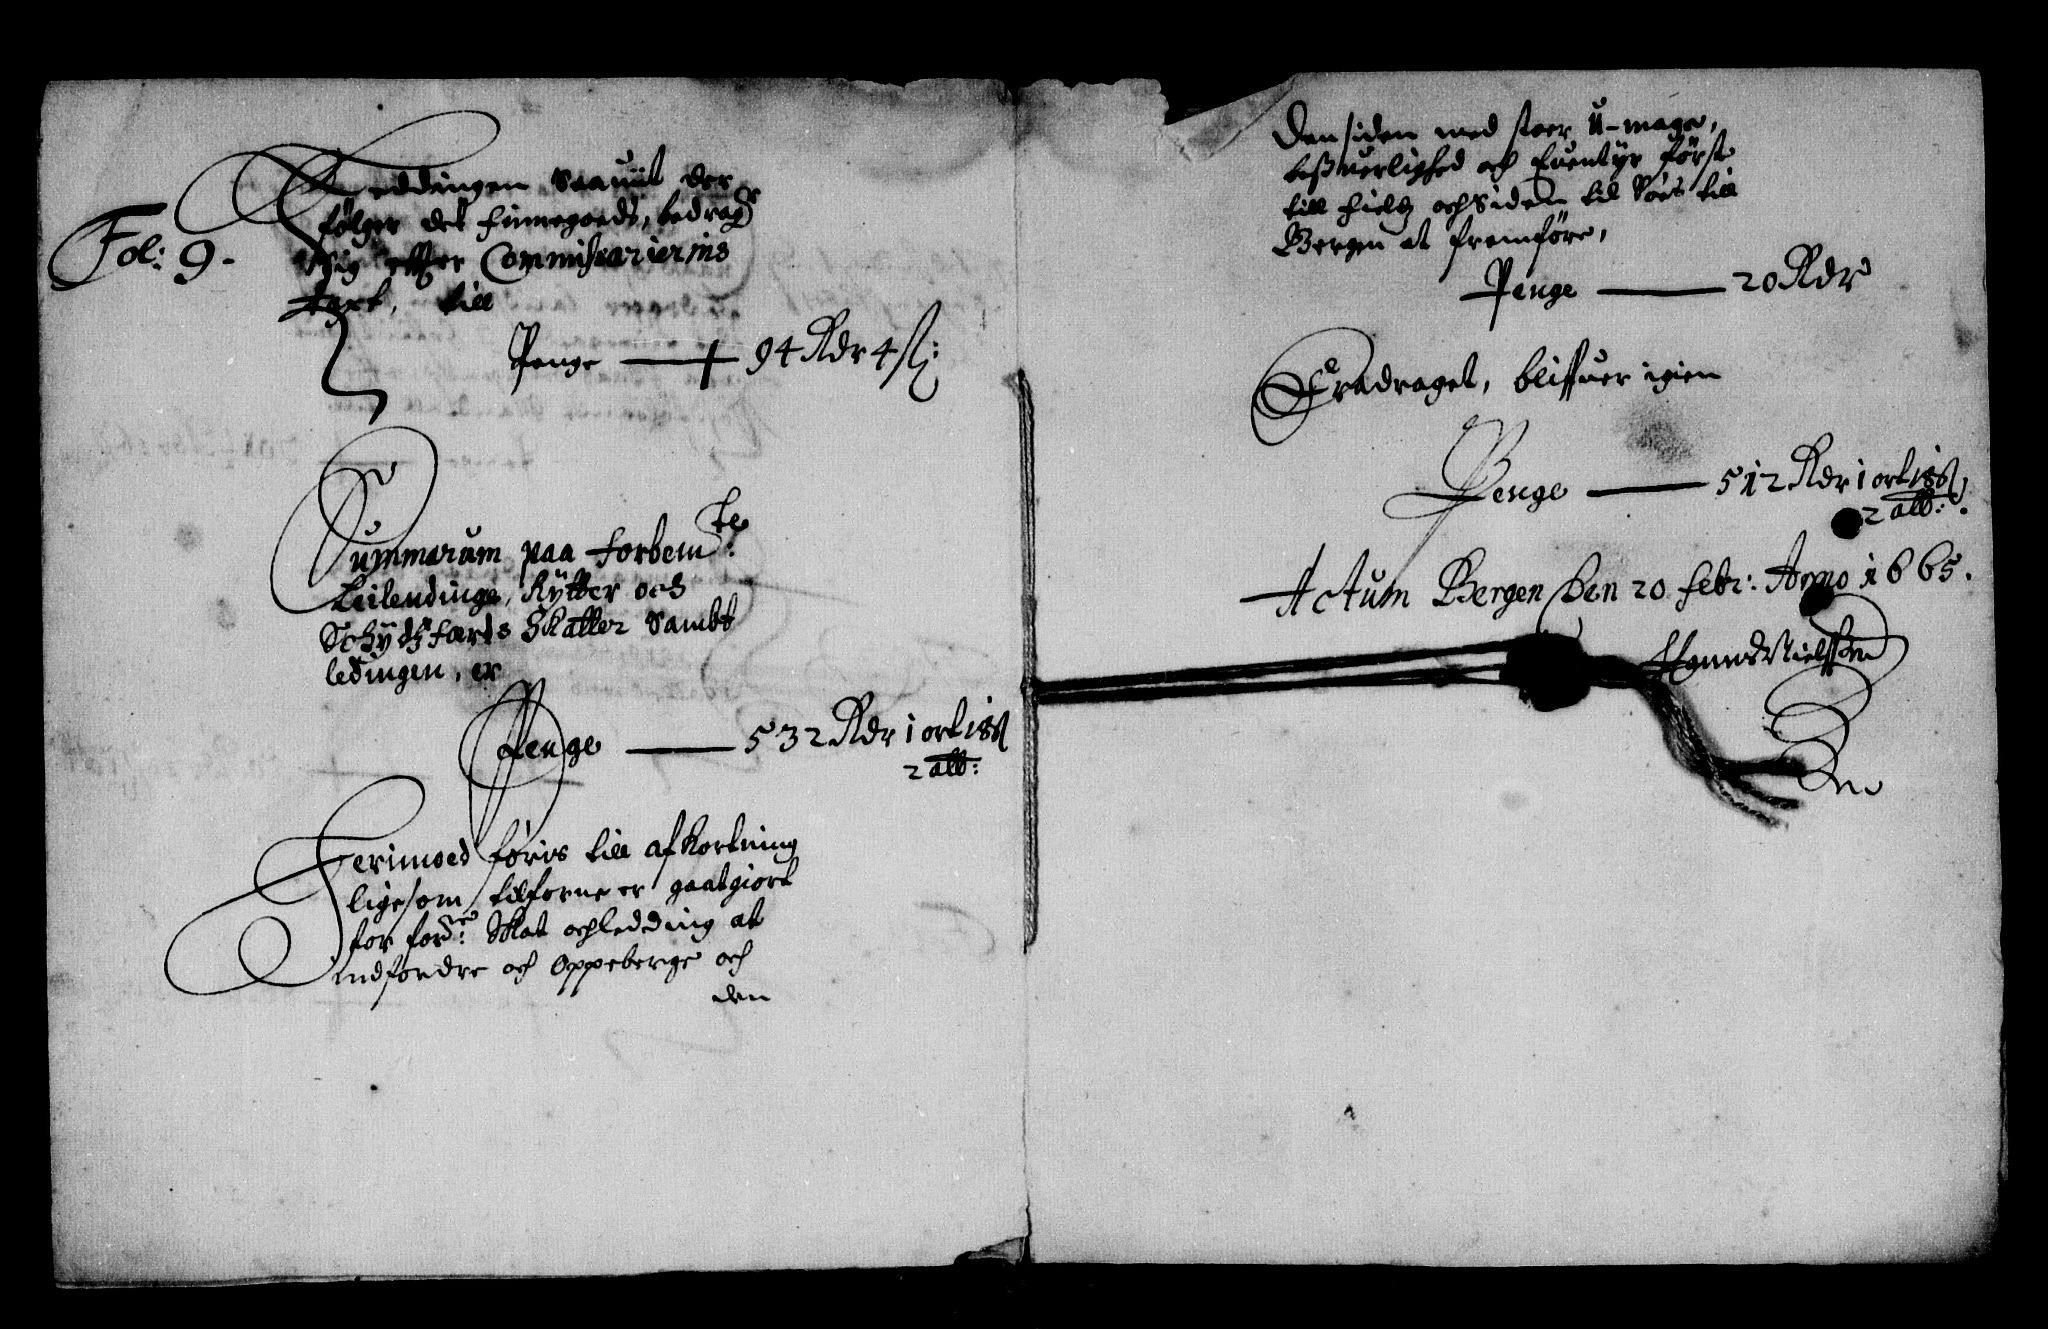 Fol: 9.
Leddingen Saauit der
følger det finnegoeds, bedrager
sig effter Commissariernis
taxt, till
Penge — 94 Rdr 4 ß:
Summarum paa forbemte:
Leilendinge, Rÿtter och
Schÿdtzfærds Skatter Sambt
ledingen, er
Penge — 532 Rdr 1 ort 18 ß
2 alb:
Herimoed føris till afkortning
ligesom tilforne er gaatgiort
for forde: Skat och ledding at
indfordre och oppeberge och
den
Den siden med stoer U-mage,
besuerlighed och Euentÿr først
till field och Siden til Søes till
Bergen at fremføre,
Penge — 20 Rdr
Fradraget, bliffuer igien
Penge — 512 Rdr 1 ort 18 ß
2 alb:
Actum Bergen Den 20 febr: Anno 1665.
Hanns Nielssen